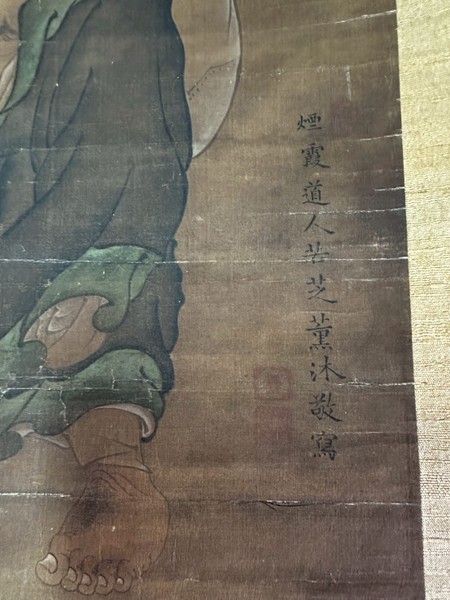 煙霞道人若芝薰沐敬寫